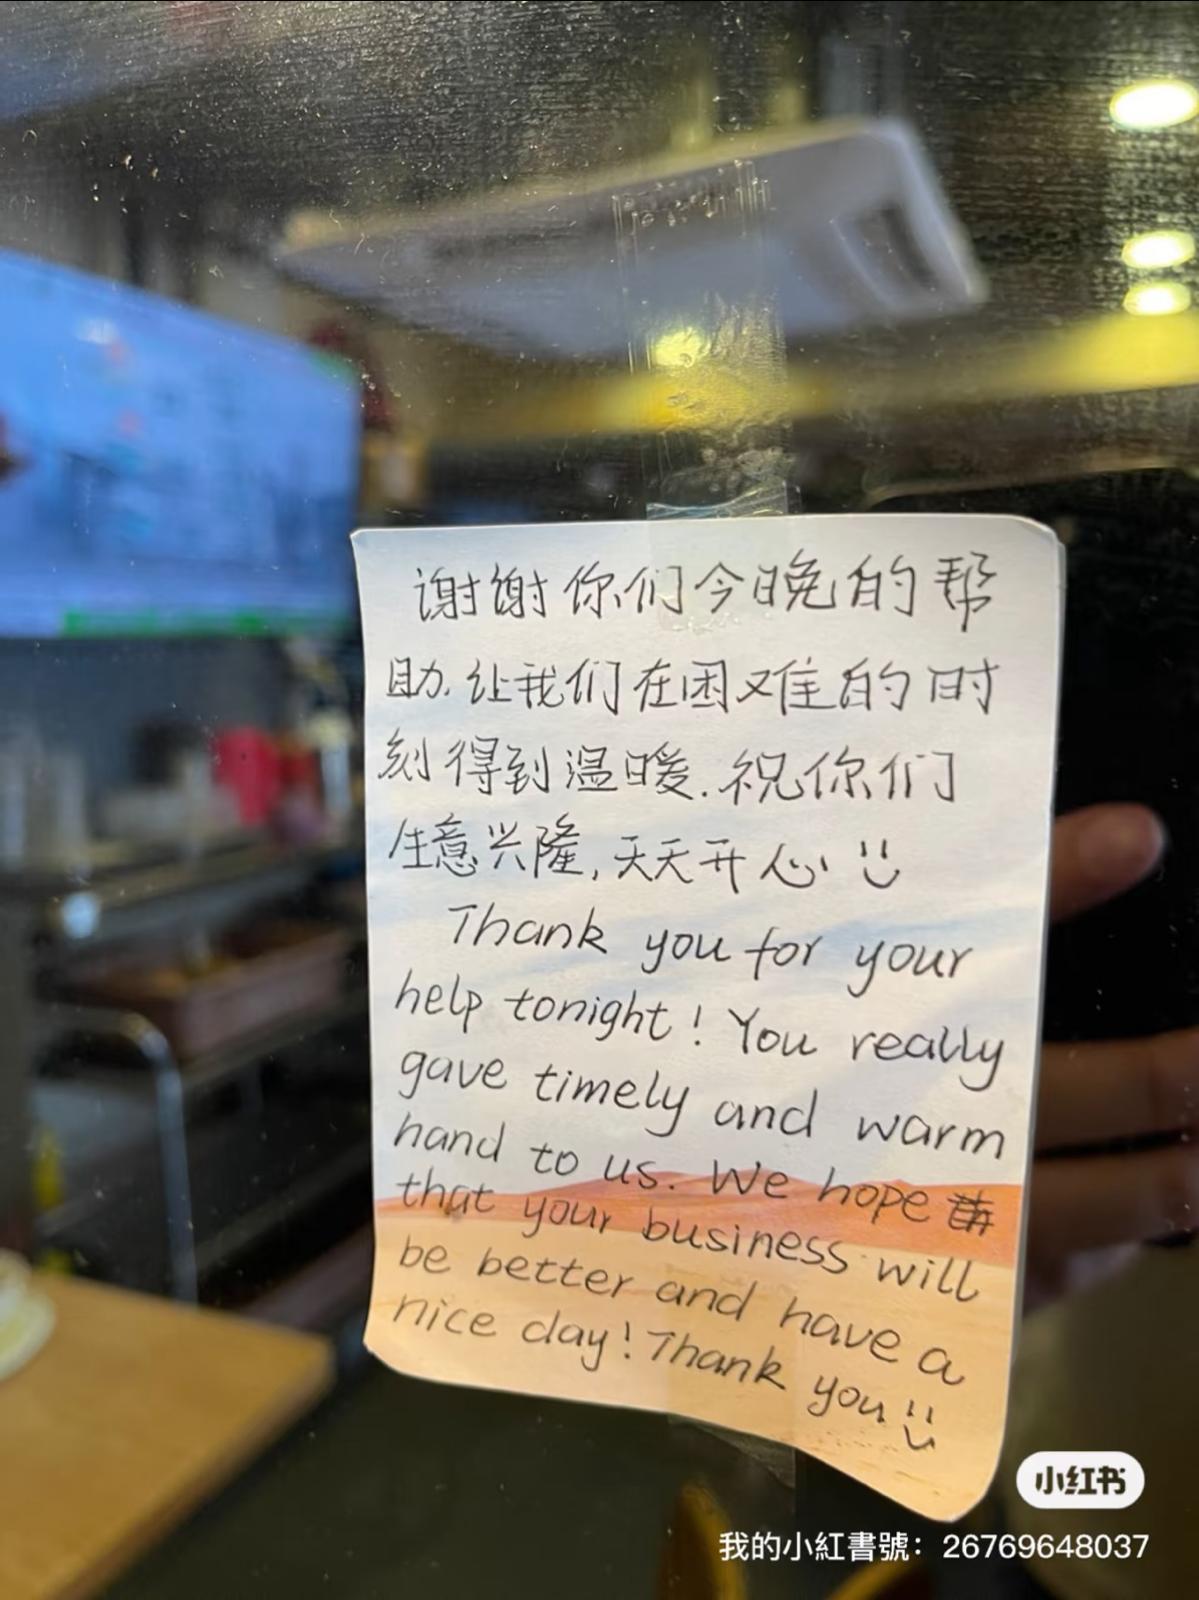 谢谢你们今晚的帮
助.让我们在困难的时
刻得到温暖.祝你们
生意兴隆,天天开心
Thank you for your
help tonight! You really
gave timely and warm
hand to us. We hope
that your business will
be better and have a
nice day! Thank you
小红书
我的小紅書號：26769648037